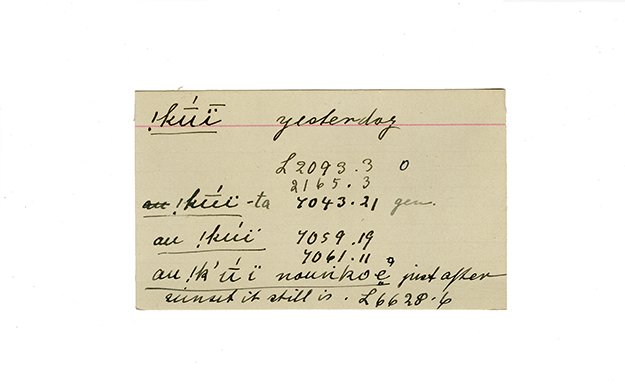 !kúï yesterday
L2093.3 0
2165.3
au !kúï -ta 7043.21 gen.
au !kúï 7059.19
7061.11
au !k'úï nounkoë just after
sunset it still is. L6628.6